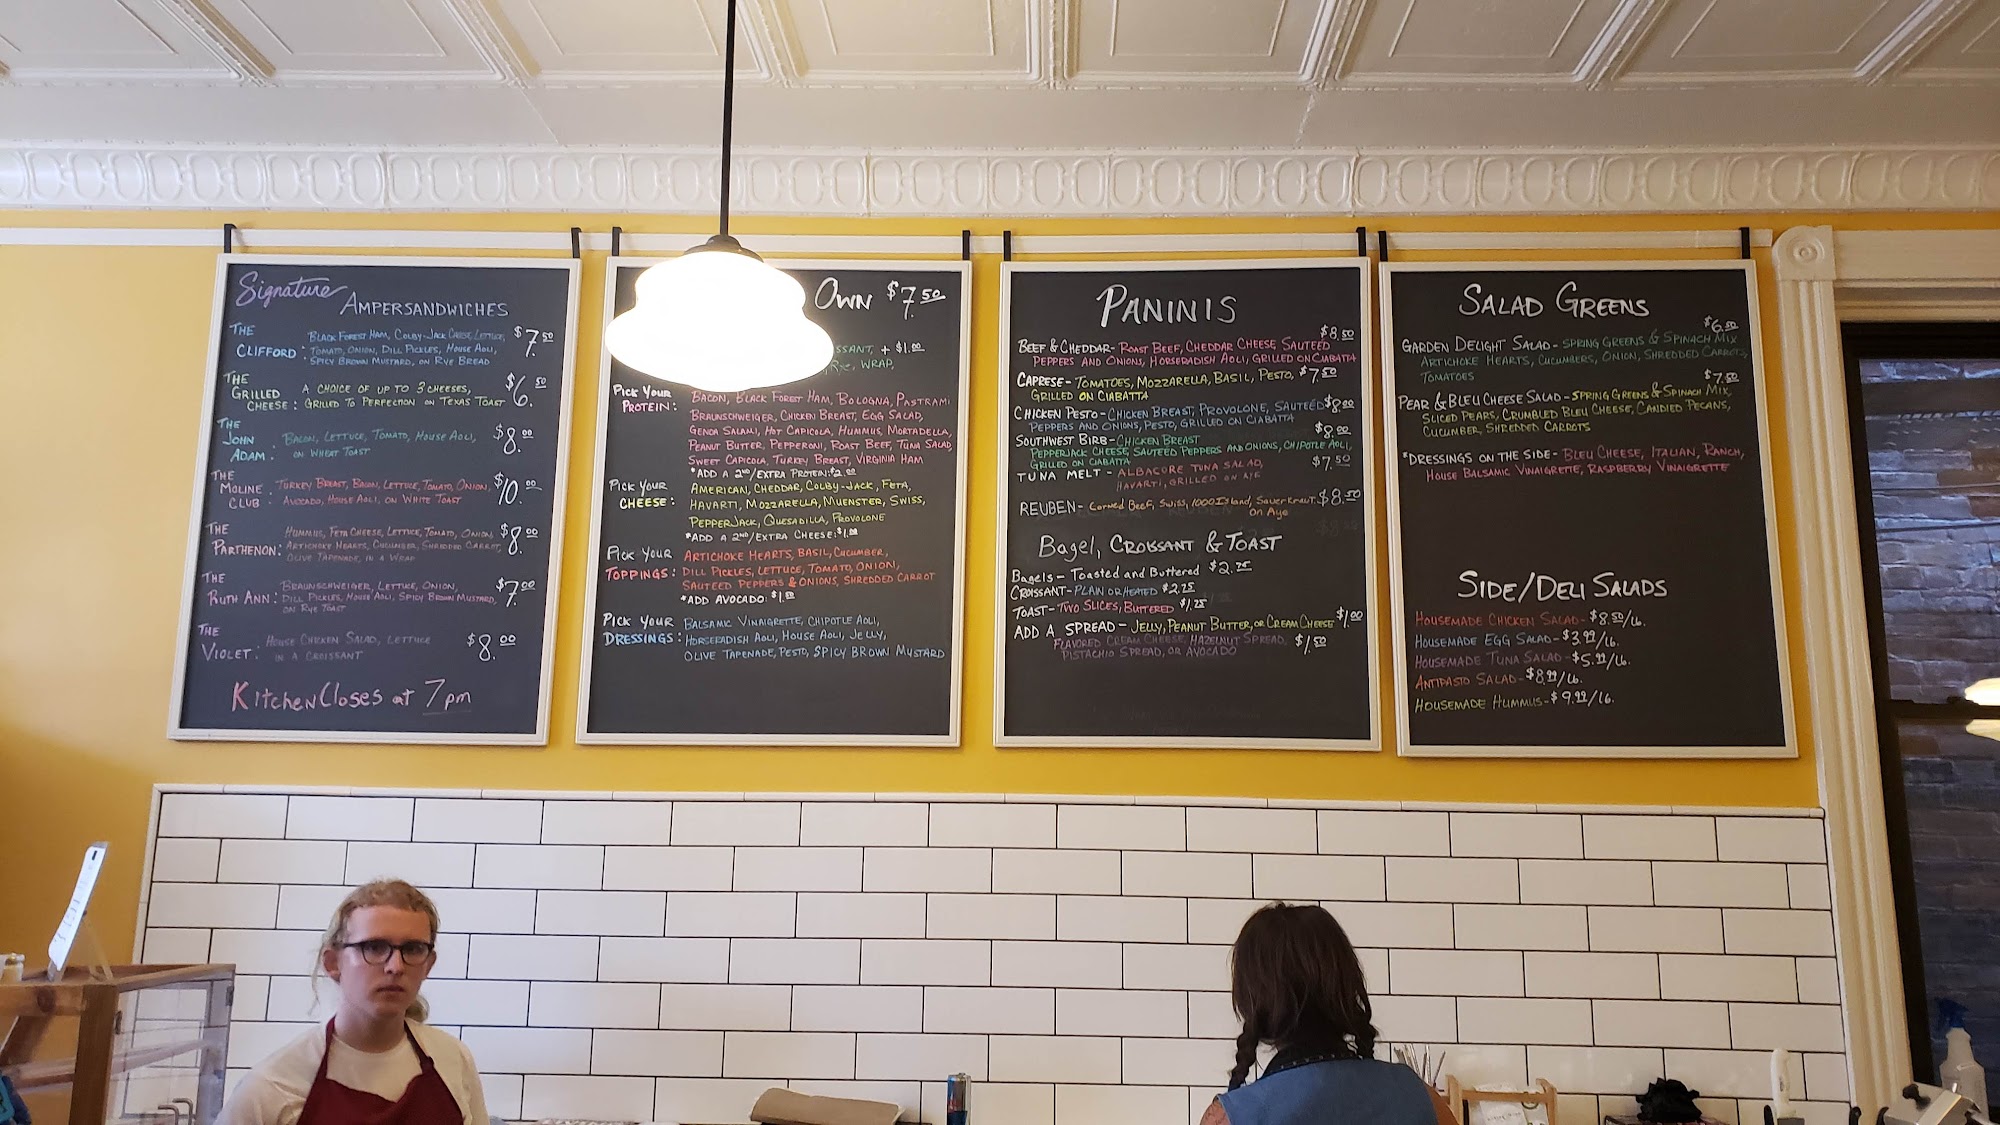 Signature
AMPERSANDWICHES
THE CLIFFORD: BLACK FOREST HAM, COLBY-JACK CHEESE, LETTUCE, $7.50
TOMATO, ONION, DILL PICKLES, HOUSE AOLI,
SPICY BROWN MUSTARD, ON RYE BREAD
THE GRILLED CHEESE: A CHOICE OF UP TO 3 CHEESES, $6.50
GRILLED TO PERFECTION ON TEXAS TOAST
THE JOHN ADAM: BACON, LETTUCE, TOMATO, HOUSE AOLI, $8.00
ON WHEAT TOAST
THE MOLINE CLUB: TURKEY BREAST, BACON, LETTUCE, TOMATO, ONION, $10.00
AVOCADO, HOUSE AOLI, ON WHITE TOAST
THE PARTHENON: HUMMUS, FETA CHEESE, LETTUCE, TOMATO, ONION, $8.00
ARTICHOKE HEARTS, CUCUMBER, SHREDDED CARROT,
OLIVE TAPENADE, IN A WRAP
THE RUTH ANN: BRAUNSCHWEIGER, LETTUCE, ONION, $7.00
DILL PICKLES, HOUSE AOLI, SPICY BROWN MUSTARD,
ON RYE TOAST
THE VIOLET: HOUSE CHICKEN SALAD, LETTUCE $8.00
IN A CROISSANT
KITCHEN CLOSES AT 7pm
OWN $7.50
+ $1.00
RYE, WRAP,
PICK YOUR PROTEIN: BACON, BLACK FOREST HAM, BOLOGNA, PASTRAMI
BRAUNSCHWEIGER, CHICKEN BREAST, EGG SALAD,
GENOA SALAMI, HOT CAPICOLA, HUMMUS, MORTADELLA,
PEANUT BUTTER, PEPPERONI, ROAST BEEF, TUNA SALAD,
SWEET CAPICOLA, TURKEY BREAST, VIRGINIA HAM
*ADD A 2ND/EXTRA PROTEIN: $2.00
PICK YOUR CHEESE: AMERICAN, CHEDDAR, COLBY-JACK, FETA,
HAVARTI, MOZZARELLA, MUENSTER, SWISS,
PEPPERJACK, QUESADILLA, PROVOLONE
*ADD A 2ND/EXTRA CHEESE: $1.00
PICK YOUR TOPPINGS: ARTICHOKE HEARTS, BASIL, CUCUMBER,
DILL PICKLES, LETTUCE, TOMATO, ONION,
SAUTEED PEPPERS & ONIONS, SHREDDED CARROT
*ADD AVOCADO: $1.50
PICK YOUR DRESSINGS: BALSAMIC VINAIGRETTE, CHIPOTLE AOLI,
HORSERADISH AOLI, HOUSE AOLI, JELLY,
OLIVE TAPENADE, PESTO, SPICY BROWN MUSTARD
PANINIS
BEEF & CHEDDAR- ROAST BEEF, CHEDDAR CHEESE, SAUTEED $8.50
PEPPERS AND ONIONS, HORSERADISH AOLI, GRILLED ON CIABATTA
CAPRESE- TOMATOES, MOZZARELLA, BASIL, PESTO, $7.50
GRILLED ON CIABATTA
CHICKEN PESTO- CHICKEN BREAST, PROVOLONE, SAUTEED $8.00
PEPPERS AND ONIONS, PESTO, GRILLED ON CIABATTA
SOUTHWEST BIRB- CHICKEN BREAST $8.00
PEPPERJACK CHEESE, SAUTEED PEPPERS AND ONIONS, CHIPOTLE AOLI,
GRILLED ON CIABATTA
TUNA MELT - ALBACORE TUNA SALAD, $7.50
HAVARTI, GRILLED ON RYE
REUBEN- Corned Beef, Swiss, 1000 Island, Sauerkraut $8.50
on Rye
Bagel, CROISSANT & TOAST
Bagels- Toasted and Buttered $2.75
CROISSANT- PLAIN OR HEATED $2.25
TOAST- TWO SLICES, BUTTERED $1.75
ADD A SPREAD- JELLY, PEANUT BUTTER, OR CREAM CHEESE $1.00
FLAVORED CREAM CHEESE, HAZELNUT SPREAD, $1.50
PISTACHIO SPREAD, OR AVOCADO
SALAD GREENS
$6.50
GARDEN DELIGHT SALAD- SPRING GREENS & SPINACH MIX
ARTICHOKE HEARTS, CUCUMBERS, ONION, SHREDDED CARROTS,
TOMATOES
$7.50
PEAR & BLEU CHEESE SALAD- SPRING GREENS & SPINACH MIX,
SLICED PEARS, CRUMBLED BLEU CHEESE, CANDIED PECANS,
CUCUMBER, SHREDDED CARROTS
*DRESSINGS ON THE SIDE- BLEU CHEESE, ITALIAN, RANCH,
HOUSE BALSAMIC VINAIGRETTE, RASPBERRY VINAIGRETTE
SIDE/DELI SALADS
HOUSEMADE CHICKEN SALAD- $8.50/lb.
HOUSEMADE EGG SALAD- $3.99/lb.
HOUSEMADE TUNA SALAD- $5.99/lb.
ANTIPASTO SALAD- $8.99/lb.
HOUSEMADE HUMMUS- $9.99/lb.